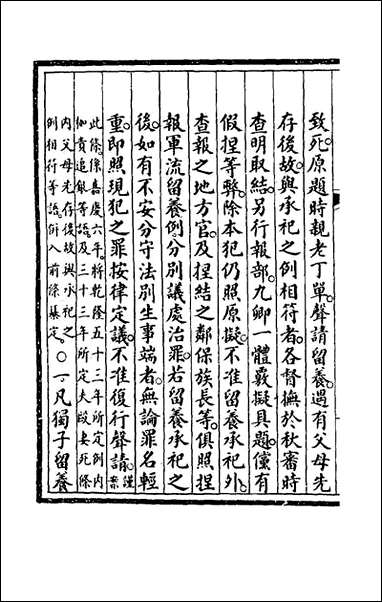 致死。原題時親老丁單。聲請留養。遇有父母先
存後故。與承祀之例相符者。各督撫於秋審時
查明取結。另行報部。九卿一體覈擬具題。儻有
假捏等弊。除本犯仍照原擬。不准留養承祀外。
查報之地方官。及捏結之鄰保族長等。俱照捏
報軍流留養例。分別議處治罪。若留養承祀之
後。如有不安分守法。別生事端者。無論罪名輕
重。即照現犯之罪。按律定議。不准復行聲請。謹案
此條係嘉慶六年。將乾隆五十三年所定例內
枷責追銀等語。及三十三年所定夫毆妻死條
內父母先存後故與承祀之
例相符等語。併入前條纂定。○一。凡獨子留養